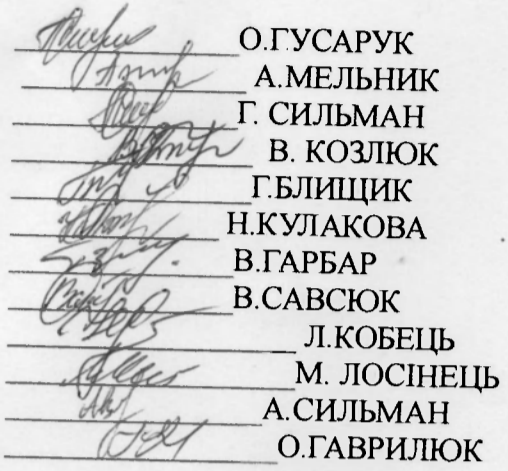 О.ГУСАРУК
А.МЕЛЬНИК
Г. СИЛЬМАН
В. КОЗЛЮК
Г.БЛИЩИК
Н.КУЛАКОВА
В.ГАРБАР
В.САВСЮК
Л.КОБЕЦЬ
М. ЛОСІНЕЦЬ
А.СИЛЬМАН
О.ГАВРИЛЮК